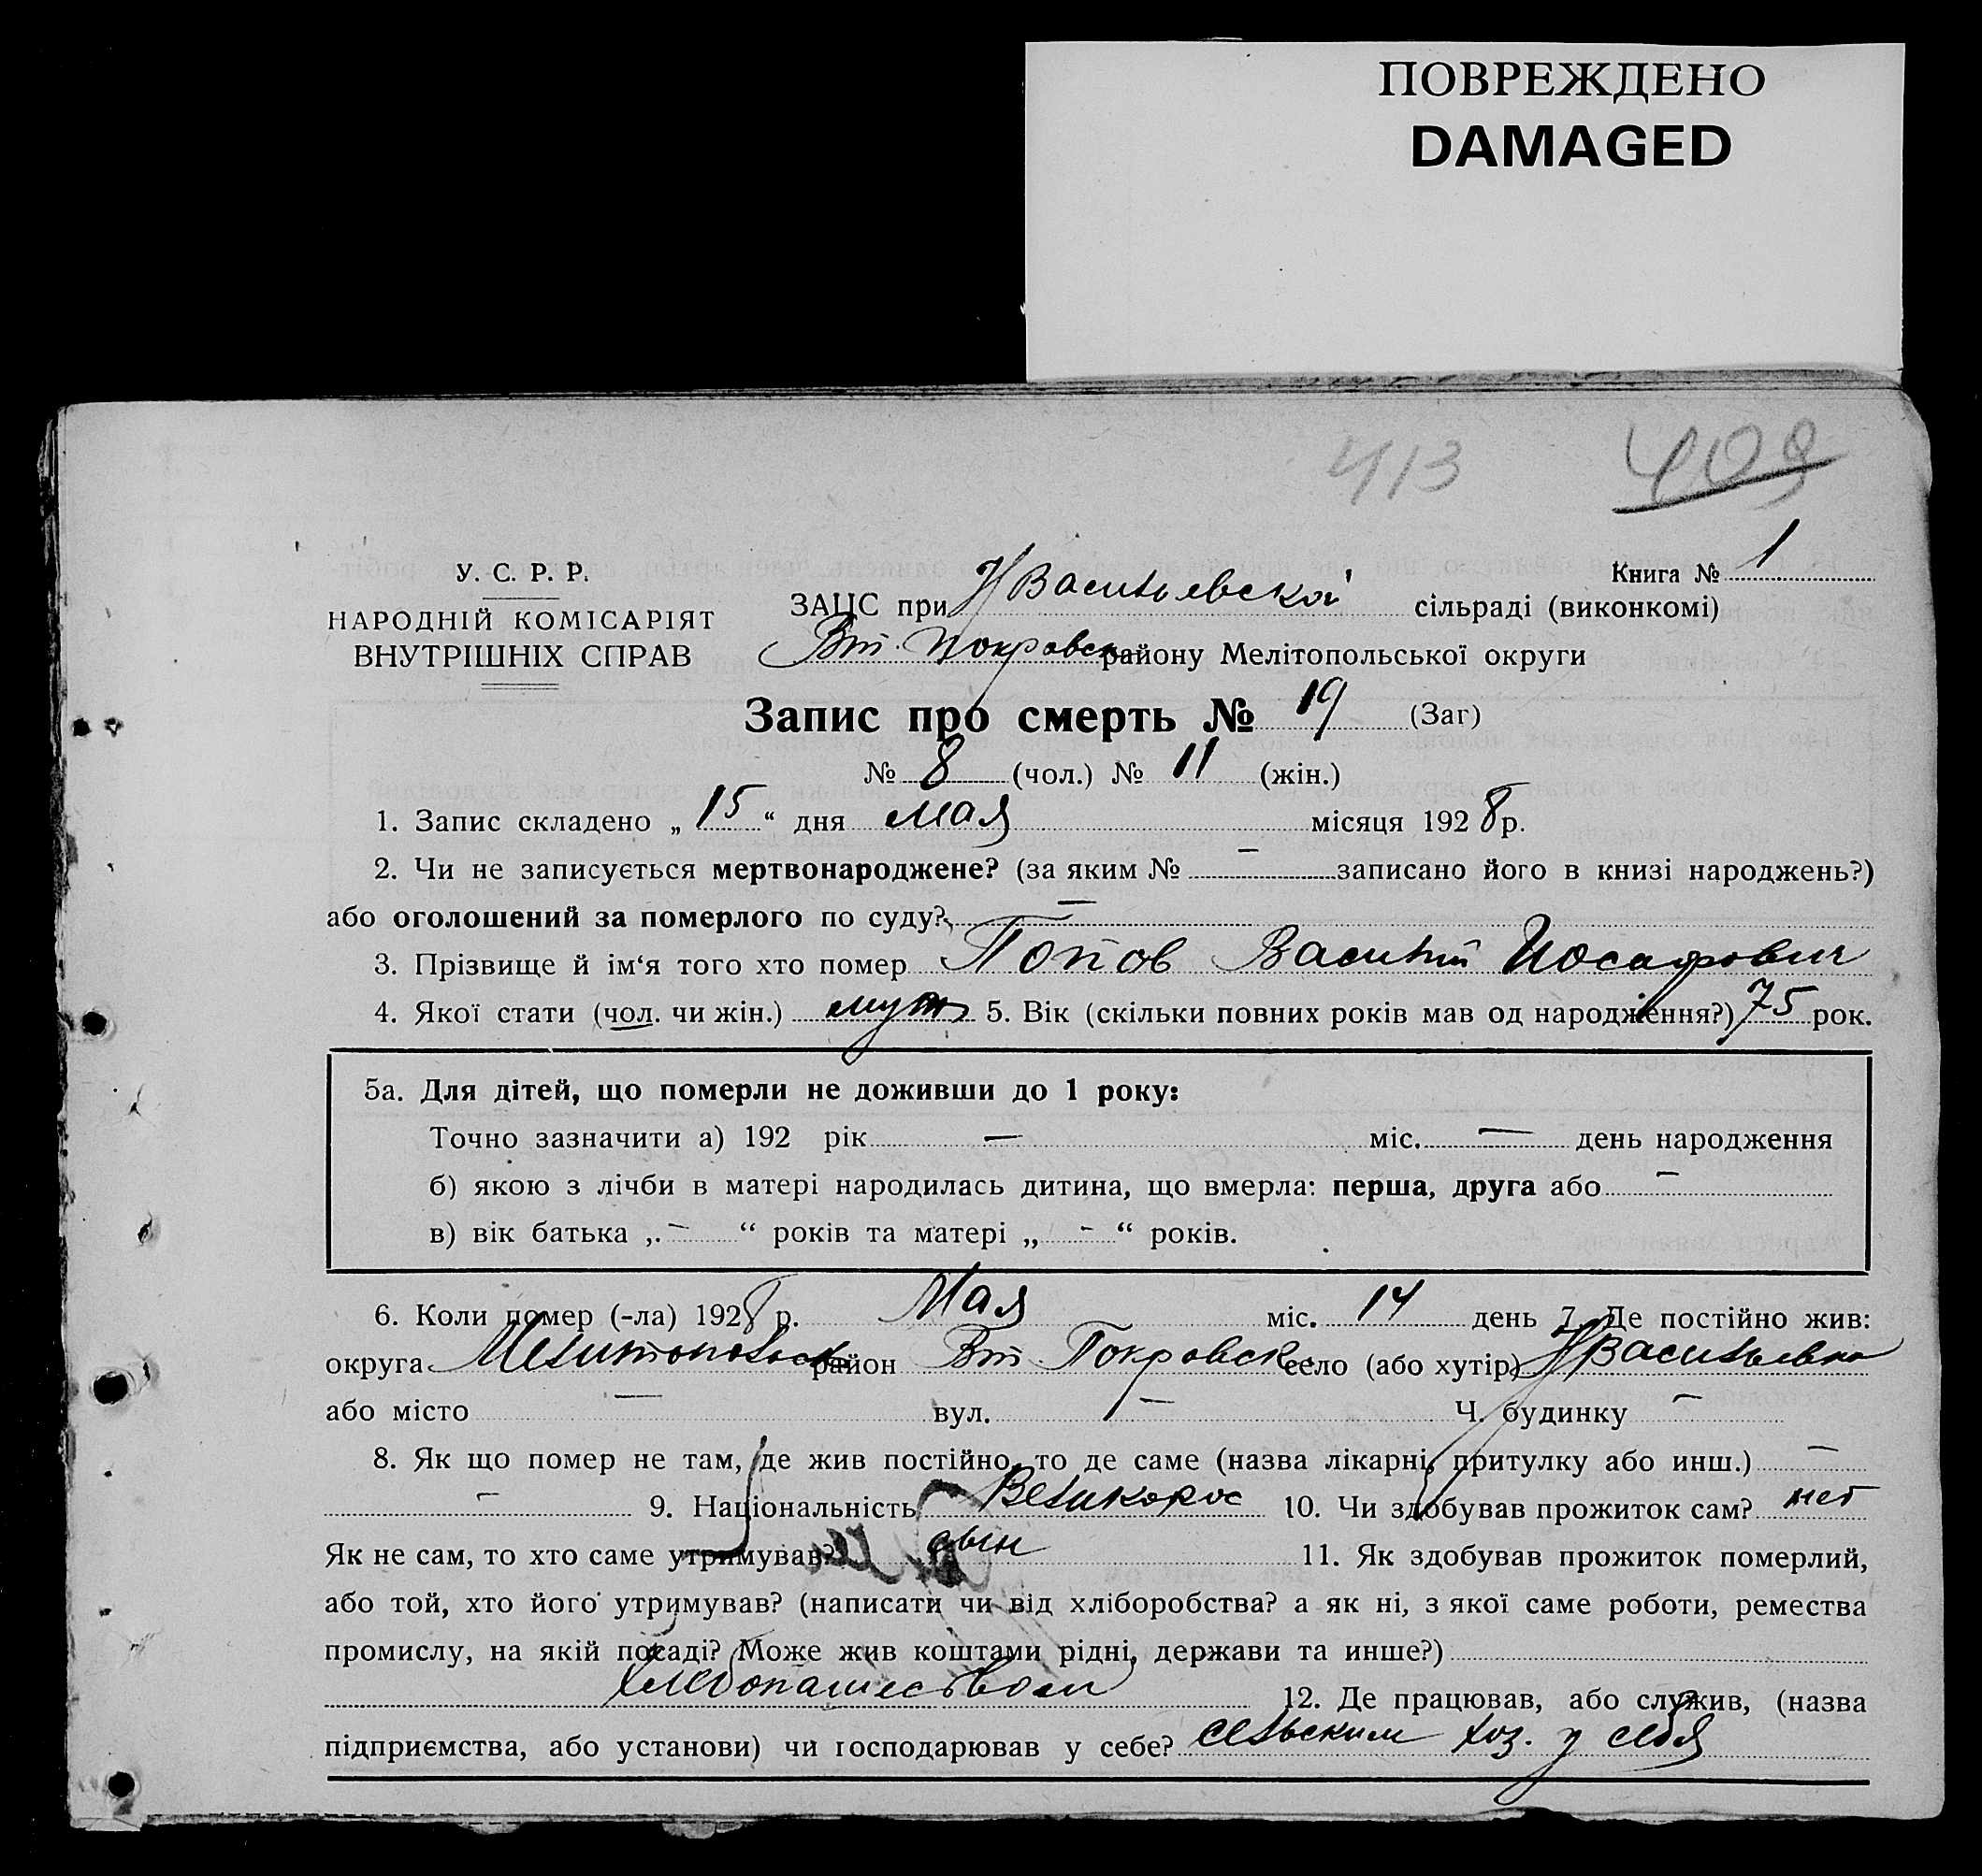 ПОВРЕЖДЕНО
DAMAGED
413 409
Книга № 1
У. С. Р. Р.
НАРОДНІЙ КОМІСАРІЯТ
ВНУТРІШНІХ СПРАВ
ЗАЦС при Н Васильевской сільраді (виконкомі)
Вт. Покровск району Мелітопольської округи
Запис про смерть № 19 (Заг)
№ 8 (чол.) № 11 (жін.)
1. Запис складено „ 15 “ дня мая місяця 1928 р.
2. Чи не записується мертвонароджене? (за яким № — записано його в книзі народжень?)
або оголошений за померлого по суду? —
3. Прізвище й ім‘я того хто помер Попов Василий Иосафович
4. Якої стати (чол. чи жін.) муж 5. Вік (скільки повних років мав од народження?) 75 рок.
5а. Для дітей, що померли не доживши до 1 року:
Точно зазначити а) 192 рік — міс. — день народження
б) якою з лічби в матері народилась дитина, що вмерла: перша, друга або —
в) вік батька „ — “ років та матері „ — “ років.
6. Коли помер (-ла) 1928 р. Мая міс. 14 день 7. Де постійно жив:
округа Мелитопольск район Вт. Покровск село (або хутір) Н Васильевка
або місто — вул. — Ч. будинку —
8. Як що помер не там, де жив постійно, то де саме (назва лікарні, притулку або инш.) —
— 9. Національність Великорос 10. Чи здобував прожиток сам? нет
Як не сам, то хто саме утримував? сын 11. Як здобував прожиток померлий,
або той, хто його утримував? (написати чи від хліборобства? а як ні, з якої саме роботи, ремества
промислу, на якій посаді? Може жив коштами рідні, держави та инше?)
хлебопашеством 12. Де працював, або служив, (назва
підприємства, або установи) чи господарював у себе? сельским хоз. у себя